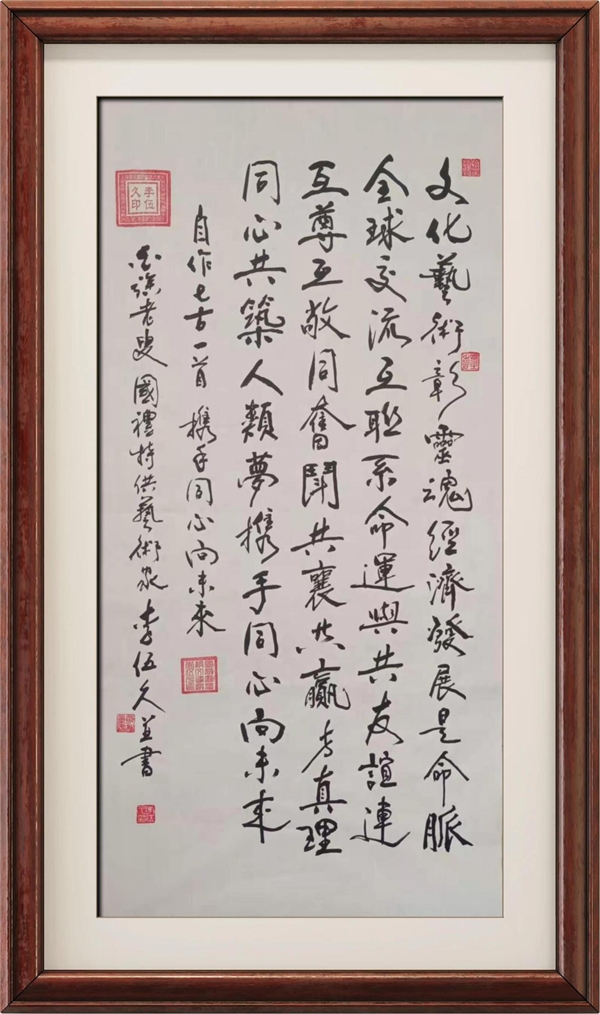 文化藝術彰靈魂經濟發展是命脈
全球交流互联系命運與共友誼連
互尊互敬同奮鬪共襄共贏真理
同心共築人類夢携手同心向未來
自作七古一首 携手同心向未來
老叟 國禮特供藝術家 李伍久並書
李伍久印